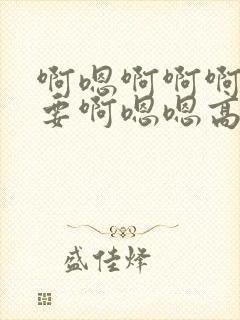 啊嗯啊啊啊
要啊嗯嗯高
盛佳烽